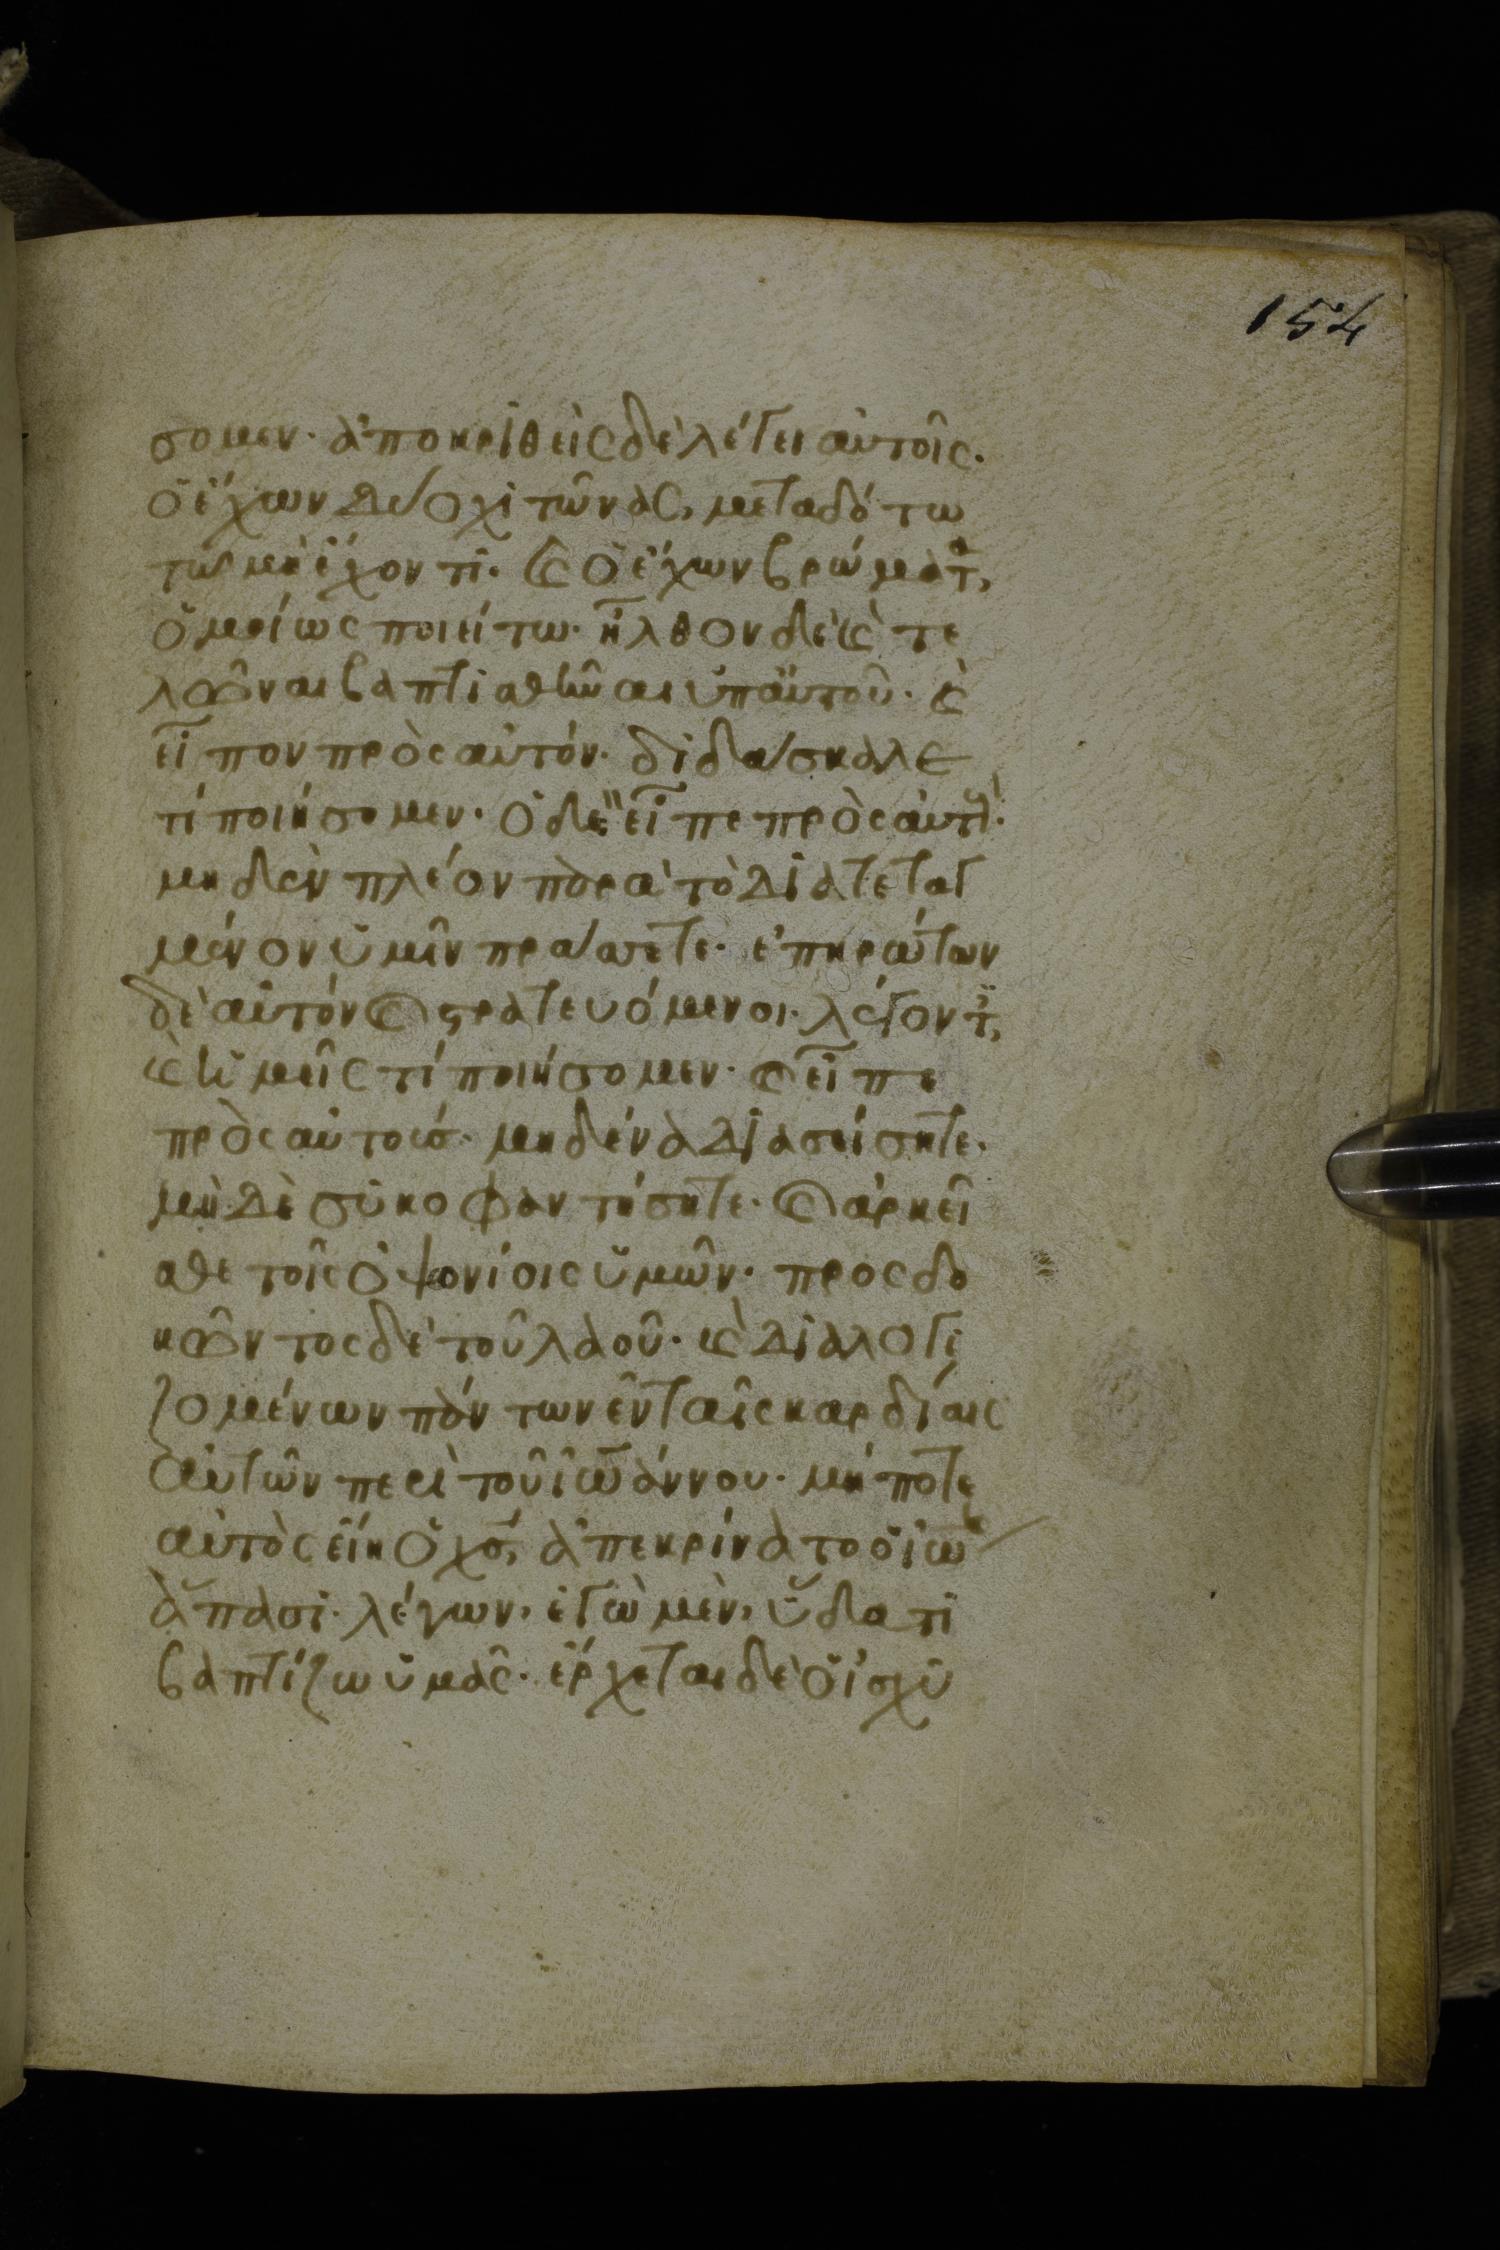 154
σομεν· ἀποκριθεὶς δὲ λέγει αὐτοῖς·
ὁ ἔχων δύο χιτῶνας, μεταδότω
τῷ μὴ ἔχοντι· καὶ ὁ ἔχων βρώματ(α),
ὁμοίως ποιείτω· ἦλθον δὲ καὶ τε
λῶναι βαπτισθῆναι ὑπ αὐτοῦ· καὶ
εἶπον πρὸς αὐτόν· διδάσκαλε
τί ποιήσομεν· ὁ δὲ εἶπε πρὸς αὐτούς·
μηδὲν πλέον παρὰ τὸ διατεταγ
μένον ὑμῖν πράσσετε· ἐπηρώτων
δὲ αὐτὸν καὶ στρατευόμενοι· λέγοντ(ες),
καὶ ἡμεῖς τί ποιήσομεν· καὶ εἶπε
πρὸς αὐτούσ· μηδένα διασείσητε·
μὴ δὲ συκοφαντήσητε· καὶ ἀρκεῖ
σθε τοῖς ὀψονίοις ὑμῶν· προσδο
κῶντος δὲ τοῦ λαοῦ· καὶ διαλογι
ζομένων πάντων ἐν ταῖς καρδίαις
αὐτῶν περὶ τοῦ ἰωάννου· μήποτε
αὐτὸς εἴη ὁ χσ, ἀπεκρίνατο ὁ ἰω
ἅπασι· λέγων, ἐγὼ μὲν, ὕδατι
βαπτίζω ὑμᾶς· ἔρχεται δὲ ὁ ἰσχυ